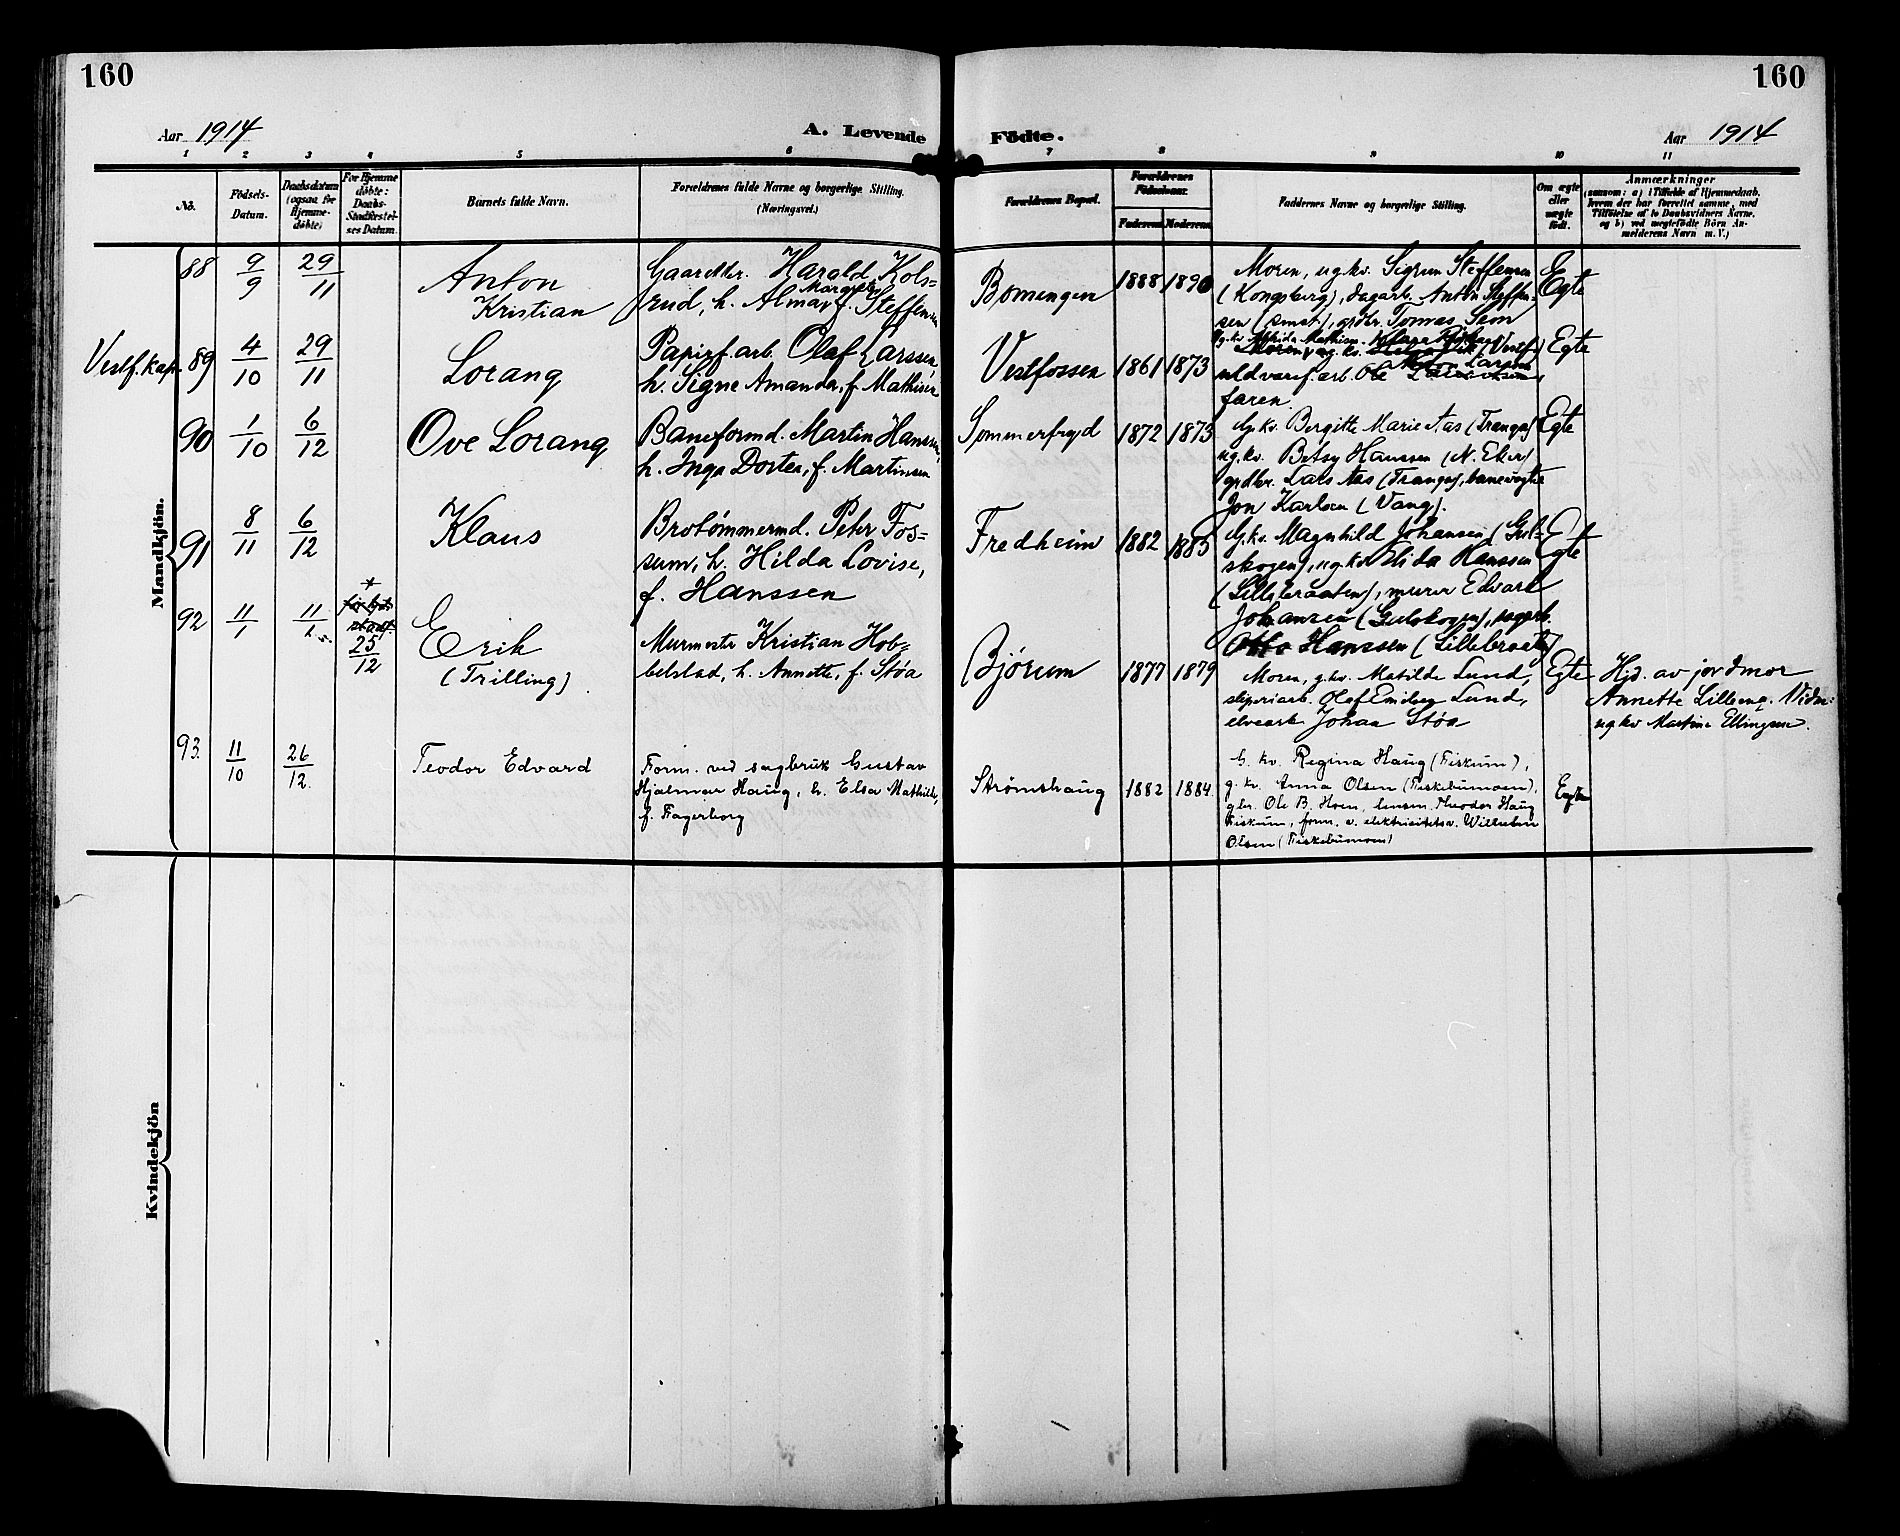 160
160
Aar 1914
A. Levende
Födte.
Aar 1914
1 2 3 4 5 6 7 8 9 10 11
No.
Födsels-
Datum.
Daabsdatum
(ogsaa for
Hjemme-
døbte)
For Hjemme
døbte:
Daabs-
Stadfæstel-
ses Datum.
Barnets fulde Navn.
Forældrenes fulde Navne og borgerlige Stilling.
(Næringsvei.)
Forældrenes Bopæl.
Forældrenes
Fødselsaar.
Faderens
Moderens
Faddernes Navne og borgerlige Stilling.
Om ægte
eller
uægte
født.
Anmærkninger
(saasom: a) i Tilfælde af Hjemmedaab.
hvem der har forrettet samme, med
Tilføielse af to Daabsvidners Navne.
og b) ved uegtefødte Börn An-
melderens Navn m. V.)
Mandkjön.
88
9/9
29/11
Anton
Kristian
Gaardbr. Harald Kols=
rud, h. Alma Margrete f. Steffensen
Bomengen
1888
1890
Moren, ug.kv. Sigrun Steffensen
(Kongsberg), dagarb. Anton Steffen-
sen (smst.), grdbr. Tomas Teon
Egte
Vestf.kap.
89
4/10
29/11
Lorang
Papirf. arb. Olaf Larssen,
h. Signe Amanda, f. Mathisen
Vestfossen
1861
1873
uldvaref. arb. Ole Larssen
faren
Egte
90
1/10
6/12
Ove Lorang
Baneformd. Martin Hanssen,
h. Inga Dortea, f. Martinsen
Sommerfryd
1872
1873
G. kv. Bergitte Marie Aas (Tranga)
ug. kv. Betsy Hanssen (N. Eker)
grdbr. Lars Aas (Tranga), banevogter
Jon Karlsen (Vang).
Egte
91
8/11
6/12
Klaus
Brotømmermd. Peter Fos=
sum, h. Hilda Lovise,
f. Hanssen
Fredheim
1882
1885
G. kv. Magnhild Johansen (Gul-
skogen), ug. kv. Hilda Hanssen
(Lillebraaten), murer Edvard
Johansen (Gulskogen), sagarb.
Otto Hanssen (Lillebraaten)
Egte
92
11/1
11/1
25/12
Erik
(Trilling)
Murmester Kristian Hob=
belstad, h. Annette, f. Støa
Bjørum
1877
1879
Moren, g. kv. Matilde Lund,
sliperiarb. Olaf Lund,
elvearb Johan Støa
Egte
Hjd. av jordmor
Annette Lilleeng. Vidn:
ug kv Martine Ellingsen.
93.
11/10
26/12.
Teodor Edvard
Form. ved sagbruk Gustav
Hjalmar Haug, h. Elsa Mathilde,
f. Fagerborg
Strømshaug
1882
1884.
G. kv. Regina Haug (Fiskum),
g. kv. Anna Olsen (Fiskebumoen),
gbr. Ole B. Hoen, lensm. Theodor Haug
Fiskum, form. v. elektricitetsv. Wilhelm
Olsen (Fiskebumoen)
Egte
Kvindekjön